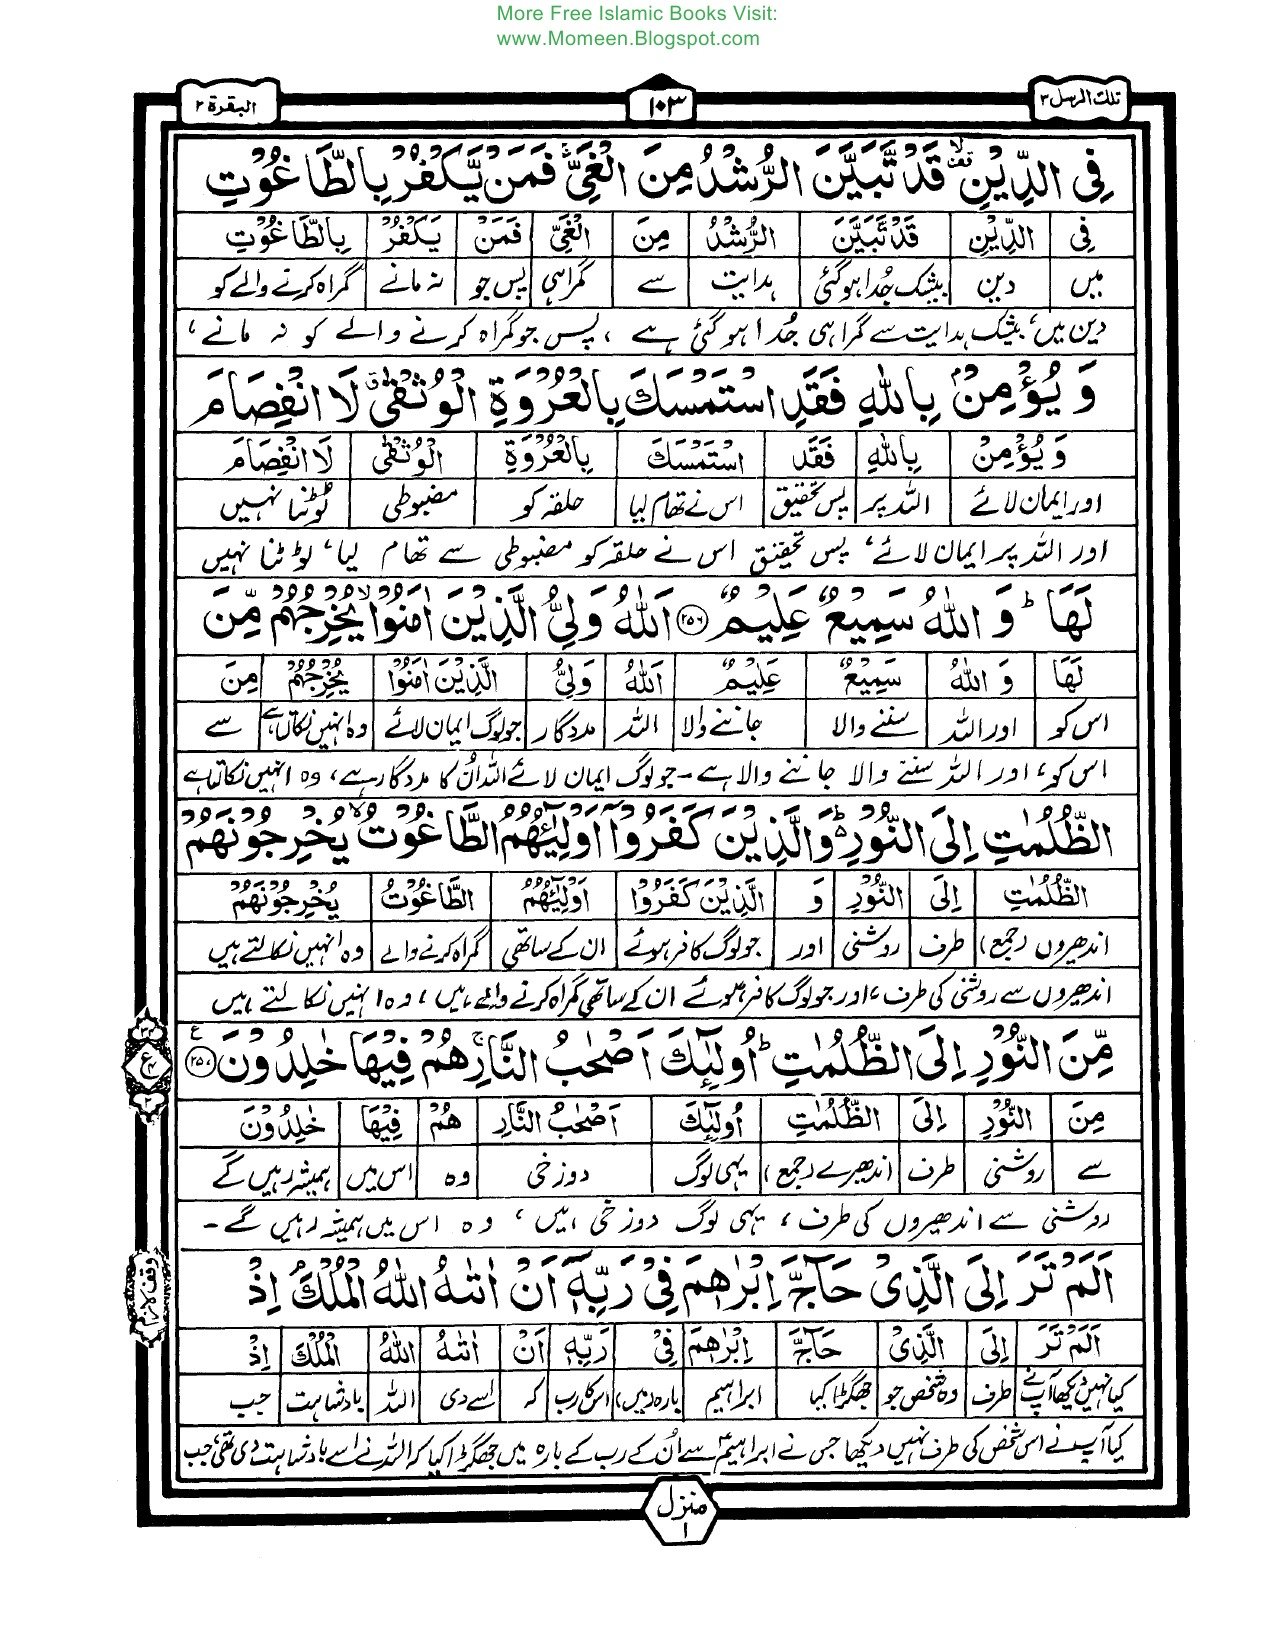 More Free Islamic Books Visit:
www.Momeen.Blogspot.com
تلك الرسل ٣
١٠٣
البقرة ٢
فِى الدِّيْنِ قَدْ تَّبَيَّنَ الرُّشْدُ مِنَ الْغَيِّ ۚ فَمَنْ يَّكْفُرْ بِالطَّاغُوْتِ
فِى الدِّيْنِ قَدْ تَّبَيَّنَ الرُّشْدُ مِنَ الْغَيِّ فَمَنْ يَكْفُرْ بِالطَّاغُوْتِ
میں دین بیشک جُدا ہوگئی ہدایت سے گمراہی پس جو نہ مانے گمراہ کرنے والے کو
دین میں، بیشک ہدایت سے گمراہی جُدا ہو گئی ہے ، پس جو گمراہ کرنے والے کو نہ مانے،
وَ يُؤْمِنْۢ بِاللّٰهِ فَقَدِ اسْتَمْسَكَ بِالْعُرْوَةِ الْوُثْقٰى لَا انْفِصَامَ
وَ يُؤْمِنْ بِاللّٰهِ فَقَدِ اسْتَمْسَكَ بِالْعُرْوَةِ الْوُثْقٰى لَا انْفِصَامَ
اور ایمان لائے اللہ پر پس تحقیق اس نے تھام لیا حلقہ کو مضبوطی ٹوٹنا نہیں
اور اللہ پر ایمان لائے، پس تحقیق اس نے حلقہ کو مضبوطی سے تھام لیا، ٹوٹنا نہیں
لَهَا ؕ وَ اللّٰهُ سَمِيْعٌ عَلِيْمٌ ۝٢٥٦ اَللّٰهُ وَلِيُّ الَّذِيْنَ اٰمَنُوْا يُخْرِجُهُمْ مِّنَ
لَهَا وَ اللّٰهُ سَمِيْعٌ عَلِيْمٌ اَللّٰهُ وَلِيُّ الَّذِيْنَ اٰمَنُوْا يُخْرِجُهُمْ مِنَ
اس کو اور اللہ سننے والا جاننے والا اللہ مددگار جو لوگ ایمان لائے وہ انہیں نکالتا ہے سے
اس کو، اور اللہ سننے والا جاننے والا ہے۔ جو لوگ ایمان لائے اللہ اُن کا مددگار ہے، وہ انہیں نکالتا ہے
الظُّلُمٰتِ اِلَى النُّوْرِ ؕ وَالَّذِيْنَ كَفَرُوْۤا اَوْلِيٰٓـُٔهُمُ الطَّاغُوْتُ يُخْرِجُوْنَهُمْ
الظُّلُمٰتِ اِلَى النُّوْرِ وَ الَّذِيْنَ كَفَرُوْا اَوْلِيٰٓـُٔهُمُ الطَّاغُوْتُ يُخْرِجُوْنَهُمْ
اندھیروں (جمع) طرف روشنی اور جو لوگ کافر ہوئے ان کے ساتھی گمراہ کرنے والے وہ انہیں نکالتے ہیں
اندھیروں سے روشنی کی طرف، اور جو لوگ کافر ہوئے ان کے ساتھی گمراہ کرنے والے ہیں، وہ انہیں نکالتے ہیں
مِّنَ النُّوْرِ اِلَى الظُّلُمٰتِ ؕ اُولٰٓئِكَ اَصْحٰبُ النَّارِ ۚ هُمْ فِيْهَا خٰلِدُوْنَ ۝٢٥٧ ع
مِنَ النُّوْرِ اِلَى الظُّلُمٰتِ اُولٰٓئِكَ اَصْحٰبُ النَّارِ هُمْ فِيْهَا خٰلِدُوْنَ
سے روشنی طرف اندھیرے (جمع) یہی لوگ دوزخی وہ اس میں ہمیشہ رہیں گے
روشنی سے اندھیروں کی طرف، یہی لوگ دوزخی ہیں، وہ اس میں ہمیشہ رہیں گے۔
اَلَمْ تَرَ اِلَى الَّذِىْ حَآجَّ اِبْرٰهٖمَ فِىْ رَبِّهٖۤ اَنْ اٰتٰىهُ اللّٰهُ الْمُلْكَ ۘ اِذْ
اَلَمْ تَرَ اِلَى الَّذِىْ حَآجَّ اِبْرٰهٖمَ فِىْ رَبِّهٖ اَنْ اٰتٰىهُ اللّٰهُ الْمُلْكَ اِذْ
کیا نہیں دیکھا آپ نے طرف وہ شخص جو جھگڑا کیا ابراہیم بارہ (میں) اس کا رب کہ اسے دی اللہ بادشاہت جب
کیا آپ نے اس شخص کی طرف نہیں دیکھا جس نے ابراہیمؑ سے اُن کے رب کے بارہ میں جھگڑا کیا کہ اللہ نے اسے بادشاہت دی تھی، جب
ع
٢
وقف لازم
منزل
١